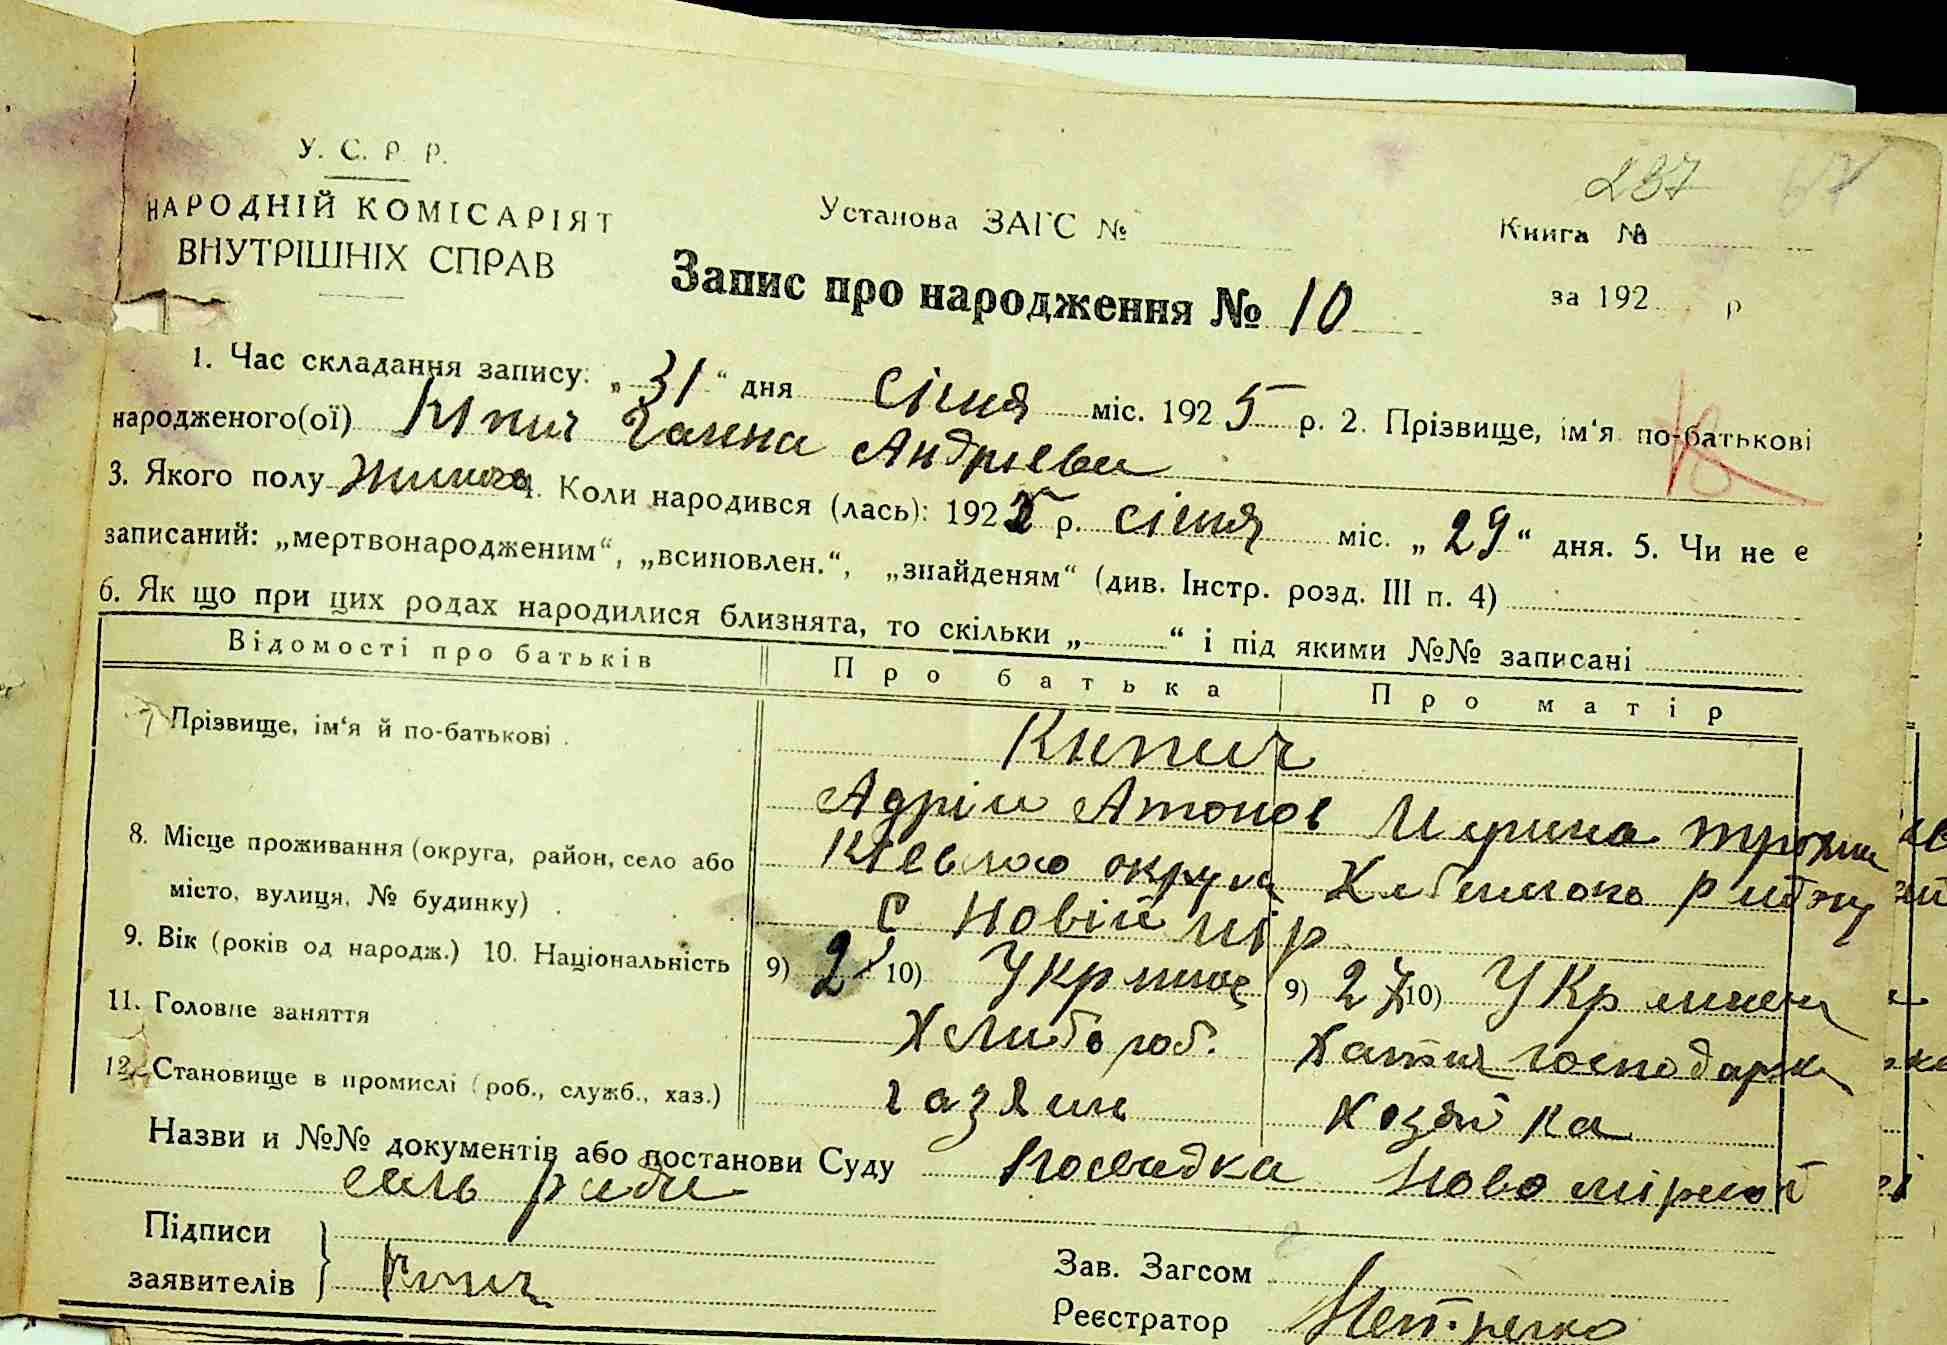 У. С. Р. Р.
НАРОДНІЙ КОМІСАРІЯТ
ВНУТРІШНІХ СПРАВ
Установа ЗАГС №
237
Книга №
за 192 р
Запис про народження № 10
1. Час складання запису: „31“ дня січня міс. 1925 р. 2. Прізвище, ім‘я по-батькові
народженого(ої) Кнпич Ганна Андрієва
3. Якого полу жиноча 4. Коли народився (лась): 1925 р. січня міс. „29“ дня. 5. Чи не є
записаний: „мертвонародженим“, „всиновлен.“, „знайденям“ (див. Інстр. розд. III п. 4)
6. Як що при цих родах народилися близнята, то скільки „ “ і під якими №№ записані
Відомості про батьків Про батька Про матір
7 Прізвище, ім‘я й по-батькові Кнпич
Адрій Атонов
8. Місце проживання (округа, район, село або Київсько округа
місто, вулиця, № будинку) С Новій мір
9. Вік (років од народж.) 10. Національність 9) 10) 9) 27 10)
11. Головне заняття Хлибороб. Хатня господарка
12. Становище в промислі (роб., служб., хаз.) газяин хозяйка
Назви и №№ документів або постанови Суду посвидка Новомірской
сель ради
Підписи
заявителів Кнпич
Зав. Загсом
Реєстратор